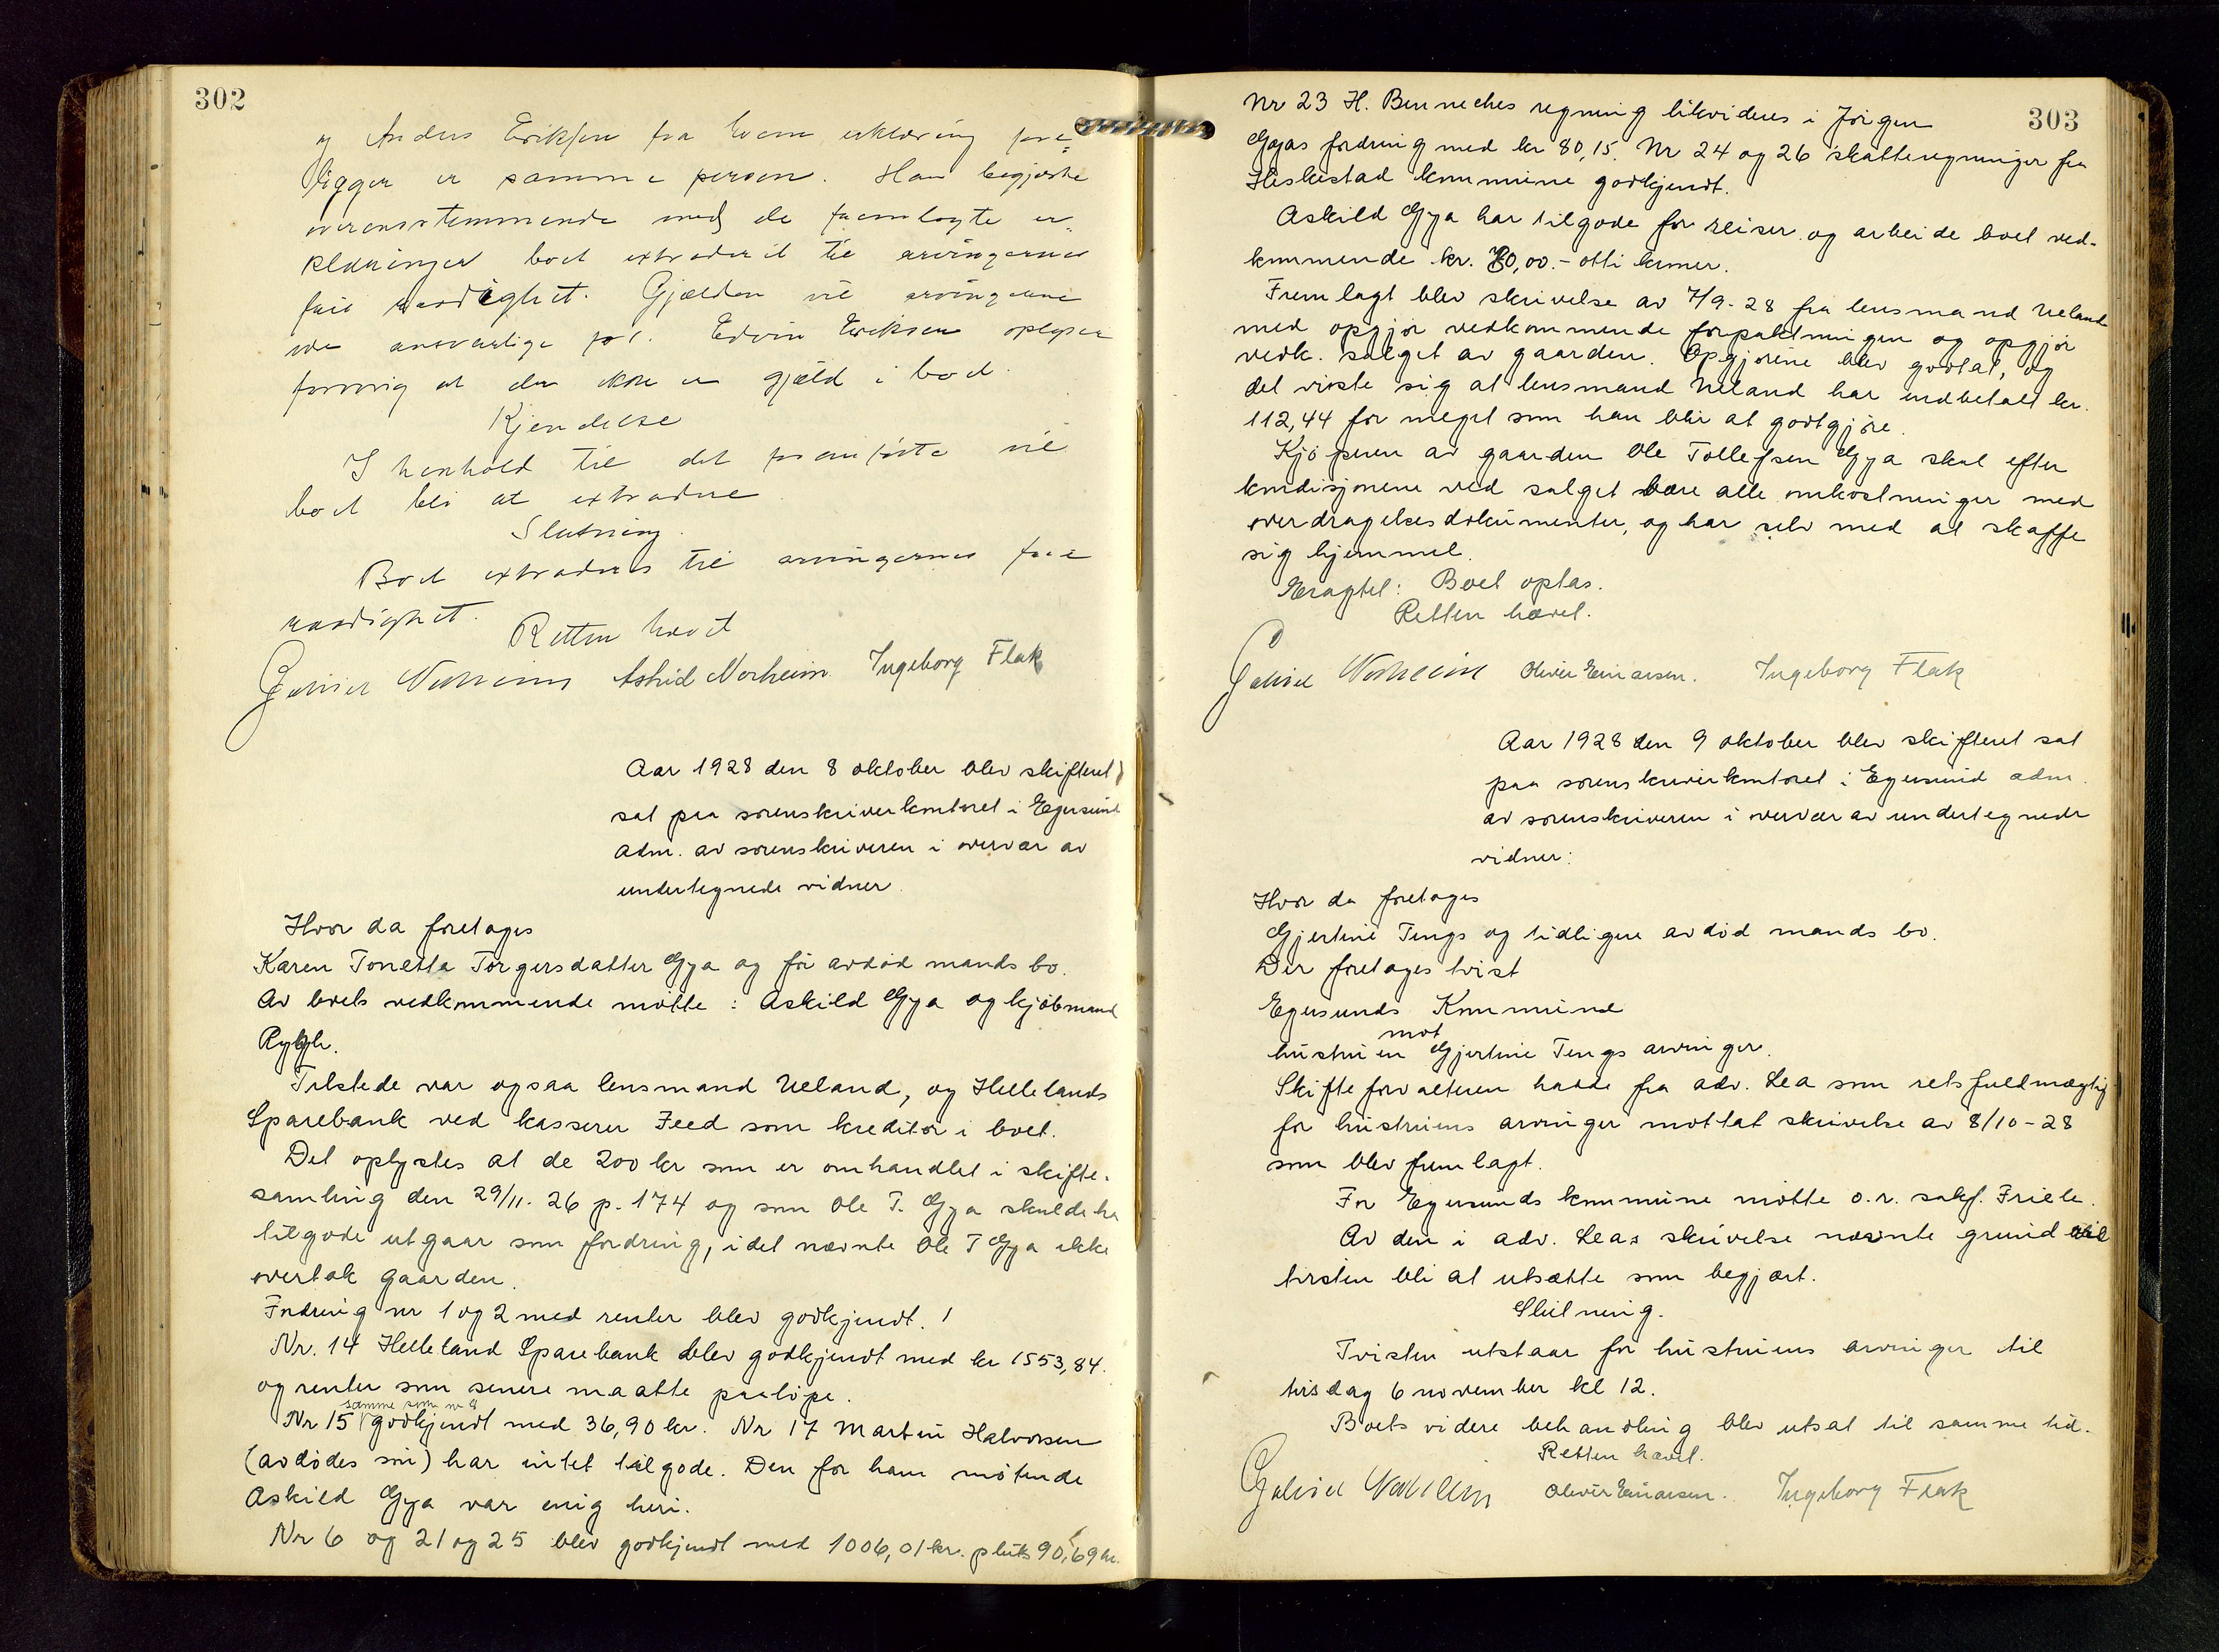 302
og Anders Eriksen fra hvem erklæring fore-
ligger er samme person. Han begjærte
overensstemmende med de fremlagte er-
klæringer boet extraderet til arvingernes
frie raadighet. Gjælden vil arvingerne
være ansvarlige for. Edvin Eriksen oplyser
forøvrig at der ikke er gjæld i boet.
Kjendelse
I henhold til det fremførte vil
boet bli at extradere
Slutning.
Boet extraderes til arvingernes frie
raadighet.
Retten hævet
Gabriel Norheim Astrid Norheim Ingeborg Flak
Aar 1928 den 8 oktober blev skifteret
sat paa sorenskriverkontoret i Egersund
adm. av sorenskriveren i overvær av
undertegnede vidner.
Hvor da foretages
Karen Tonetta Torgersdatter Gya og før avdød mands bo.
Av boets vedkommende møtte: Askild Gya og kjøbmand
Rykjh.
Tilstede var ogsaa lensmand Ueland, og Hellelands
Sparebank ved kasserer Feed som kreditor i boet.
Det oplystes at de 200 kr som er omhandlet i skifte-
samling den 29/11. 26 p. 174 og som Ole T. Gya skulde ha
tilgode utgaar som fordring, idet nævnte Ole T Gya ikke
overtok gaarden.
Fordring nr 1 og 2 med renter blev godkjendt. !
Nr. 14 Helleland Sparebank blev godkjendt med kr 1553,84.
og renter som senere maatte paaløpe.
samme som nr 8
Nr 15 godkjendt med 36,90 kr. Nr 17 Martin Halvorsen
(avdødes søn) har intet tilgode. Den for ham møtende
Askild Gya var enig heri.
Nr 6 og 21 og 25 blev godkjendt med 1006,01 kr. pluts 90,69 kr.
303
Nr 23 H. Benneches regning likvideres i Jørgen
Gyas fordring med kr 80,15. Nr 24 og 26 skatteregninger fra
Heskestad kommune godkjendt.
Askild Gya har tilgode for reiser og arbeide boet ved-
kommende kr. 80,00.- otti kroner.
Fremlagt blev skrivelse av 7/9-28 fra lensmand Ueland
med opgjør vedkommende forpaktningen og opgjør
vedk. salget av gaarden. Opgjørene blev godtat, og
det viste sig at lensmand Ueland har indbetalt kr.
112,44 for meget som han blir at godtgjøre.
Kjøperen av gaarden Ole Tollefsen Gya skal efter
kondisjonene ved salget bære alle omkostninger med
overdragelsesdokumenter, og har selv med at skaffe
sig hjemmel.
Eragtet: Boet optas.
Retten hævet.
Gabriel Norheim Oliver Einarsen. Ingeborg Flak
Aar 1928 den 9 oktober blev skifteret sat
paa sorenskriverkontoret i Egersund adm.
av sorenskriveren i overvær av undertegnede
vidner:
Hvor da foretages
Gjertine Tengs og tidligere avdød mands bo.
Der foretages tvist
Egersunds Kommune
mot
hustruen Gjertine Tengs arvinger.
Skifteforvalteren hadde fra adv. Lea som retsfuldmægtig
for hustruens arvinger mottat skrivelse av 8/10-28
som blev fremlagt.
For Egersunds kommune møtte o.r. sakf. Friele.
Av den i adv. Leas skrivelse nævnte grund vil
tvisten bli at utsætte som begjært.
Slutning.
Tvisten utstaar for hustruens arvinger til
tirsdag 6 november kl 12.
Boets videre behandling blev utsat til samme tid.
Retten hævet.
Gabriel Norheim Oliver Einarsen. Ingeborg Flak